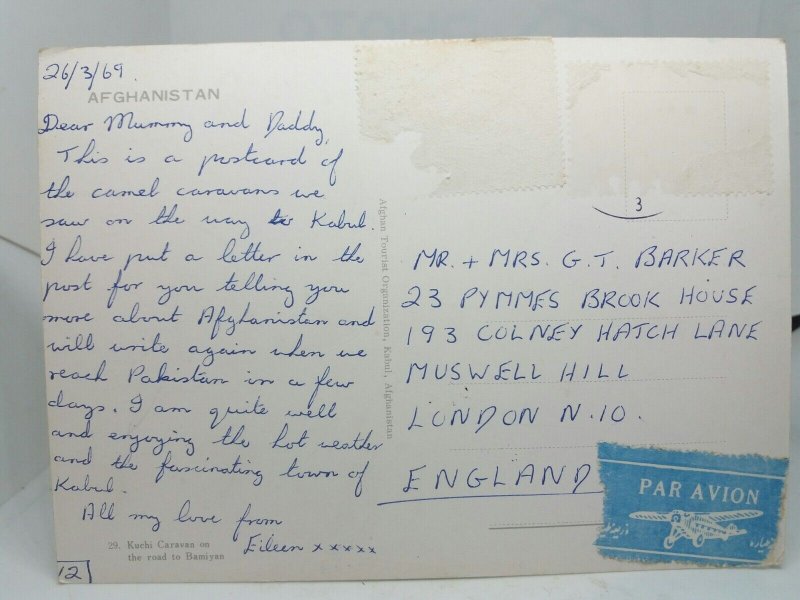 26/3/69.
AFGHANISTAN
Dear Mummy and Daddy,
This is a postcard of
the camel caravans we
saw on the way to Kabul.
I have put a letter in the
post for you telling you
more about Afghanistan and
will write again when we
reach Pakistan in a few
days. I am quite well
and enjoying the hot weather
and the fascinating town of
Kabul.
All my love from
Eileen xxxxx
29. Kuchi Caravan on
the road to Bamiyan
12
Afghan Tourist Organization, Kabul, Afghanistan
3
MR. + MRS. G.T. BARKER
23 PYMMES BROOK HOUSE
193 COLNEY HATCH LANE
MUSWELL HILL
LONDON N.10.
ENGLAND
PAR AVION